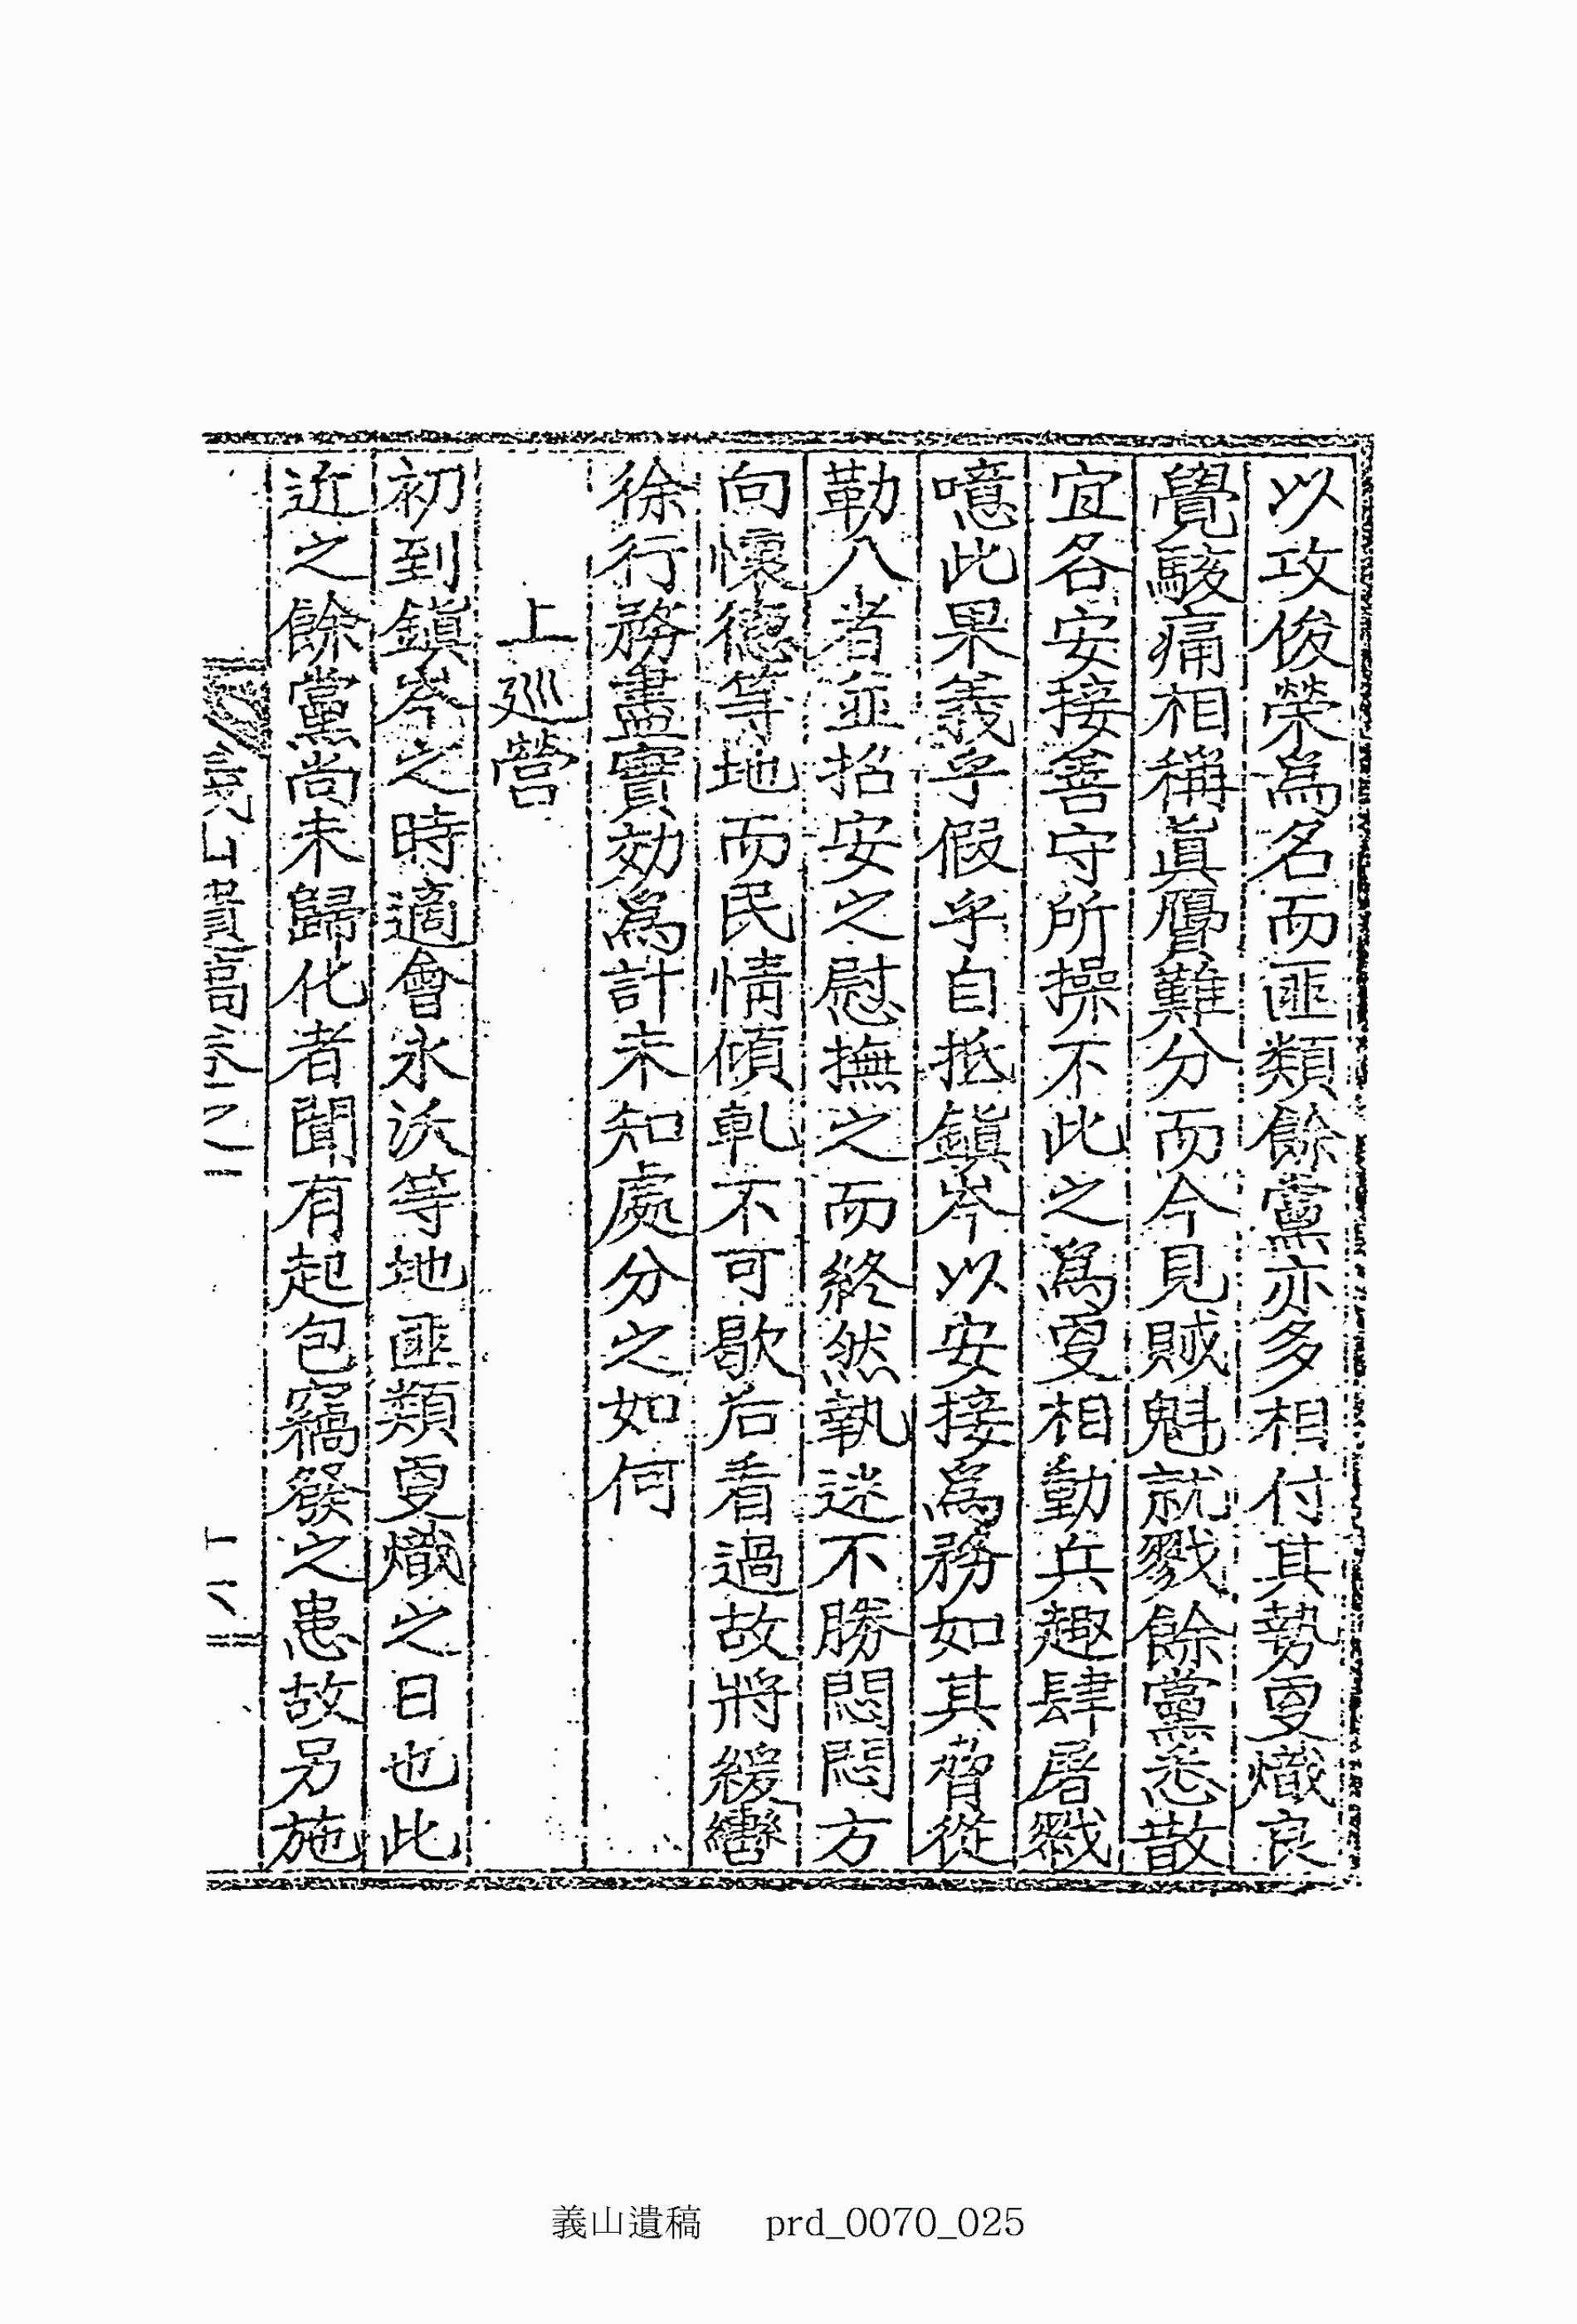 以攻俊榮爲名而匪類餘黨亦多相付其勢更熾良
覺駭痛相稱眞贋難分而今見賊魁就戮餘黨悉散
宜各安接善守所操不此之爲更相動兵趣肆屠戮
噫此果義乎假乎自抵鎭岑以安接爲務如其脅從
勒入者並招安之慰撫之而終然執迷不勝悶悶方
向懷德等地而民情傾軋不可歇后看過故將緩轡
徐行務盡實効爲計未知處分之如何
上巡營
初到鎭岑之時適會永沃等地匪類更熾之日也此
近之餘黨尚未歸化者聞有起包竊發之患故另施
義山遺稿卷之二
義山遺稿 prd_0070_025